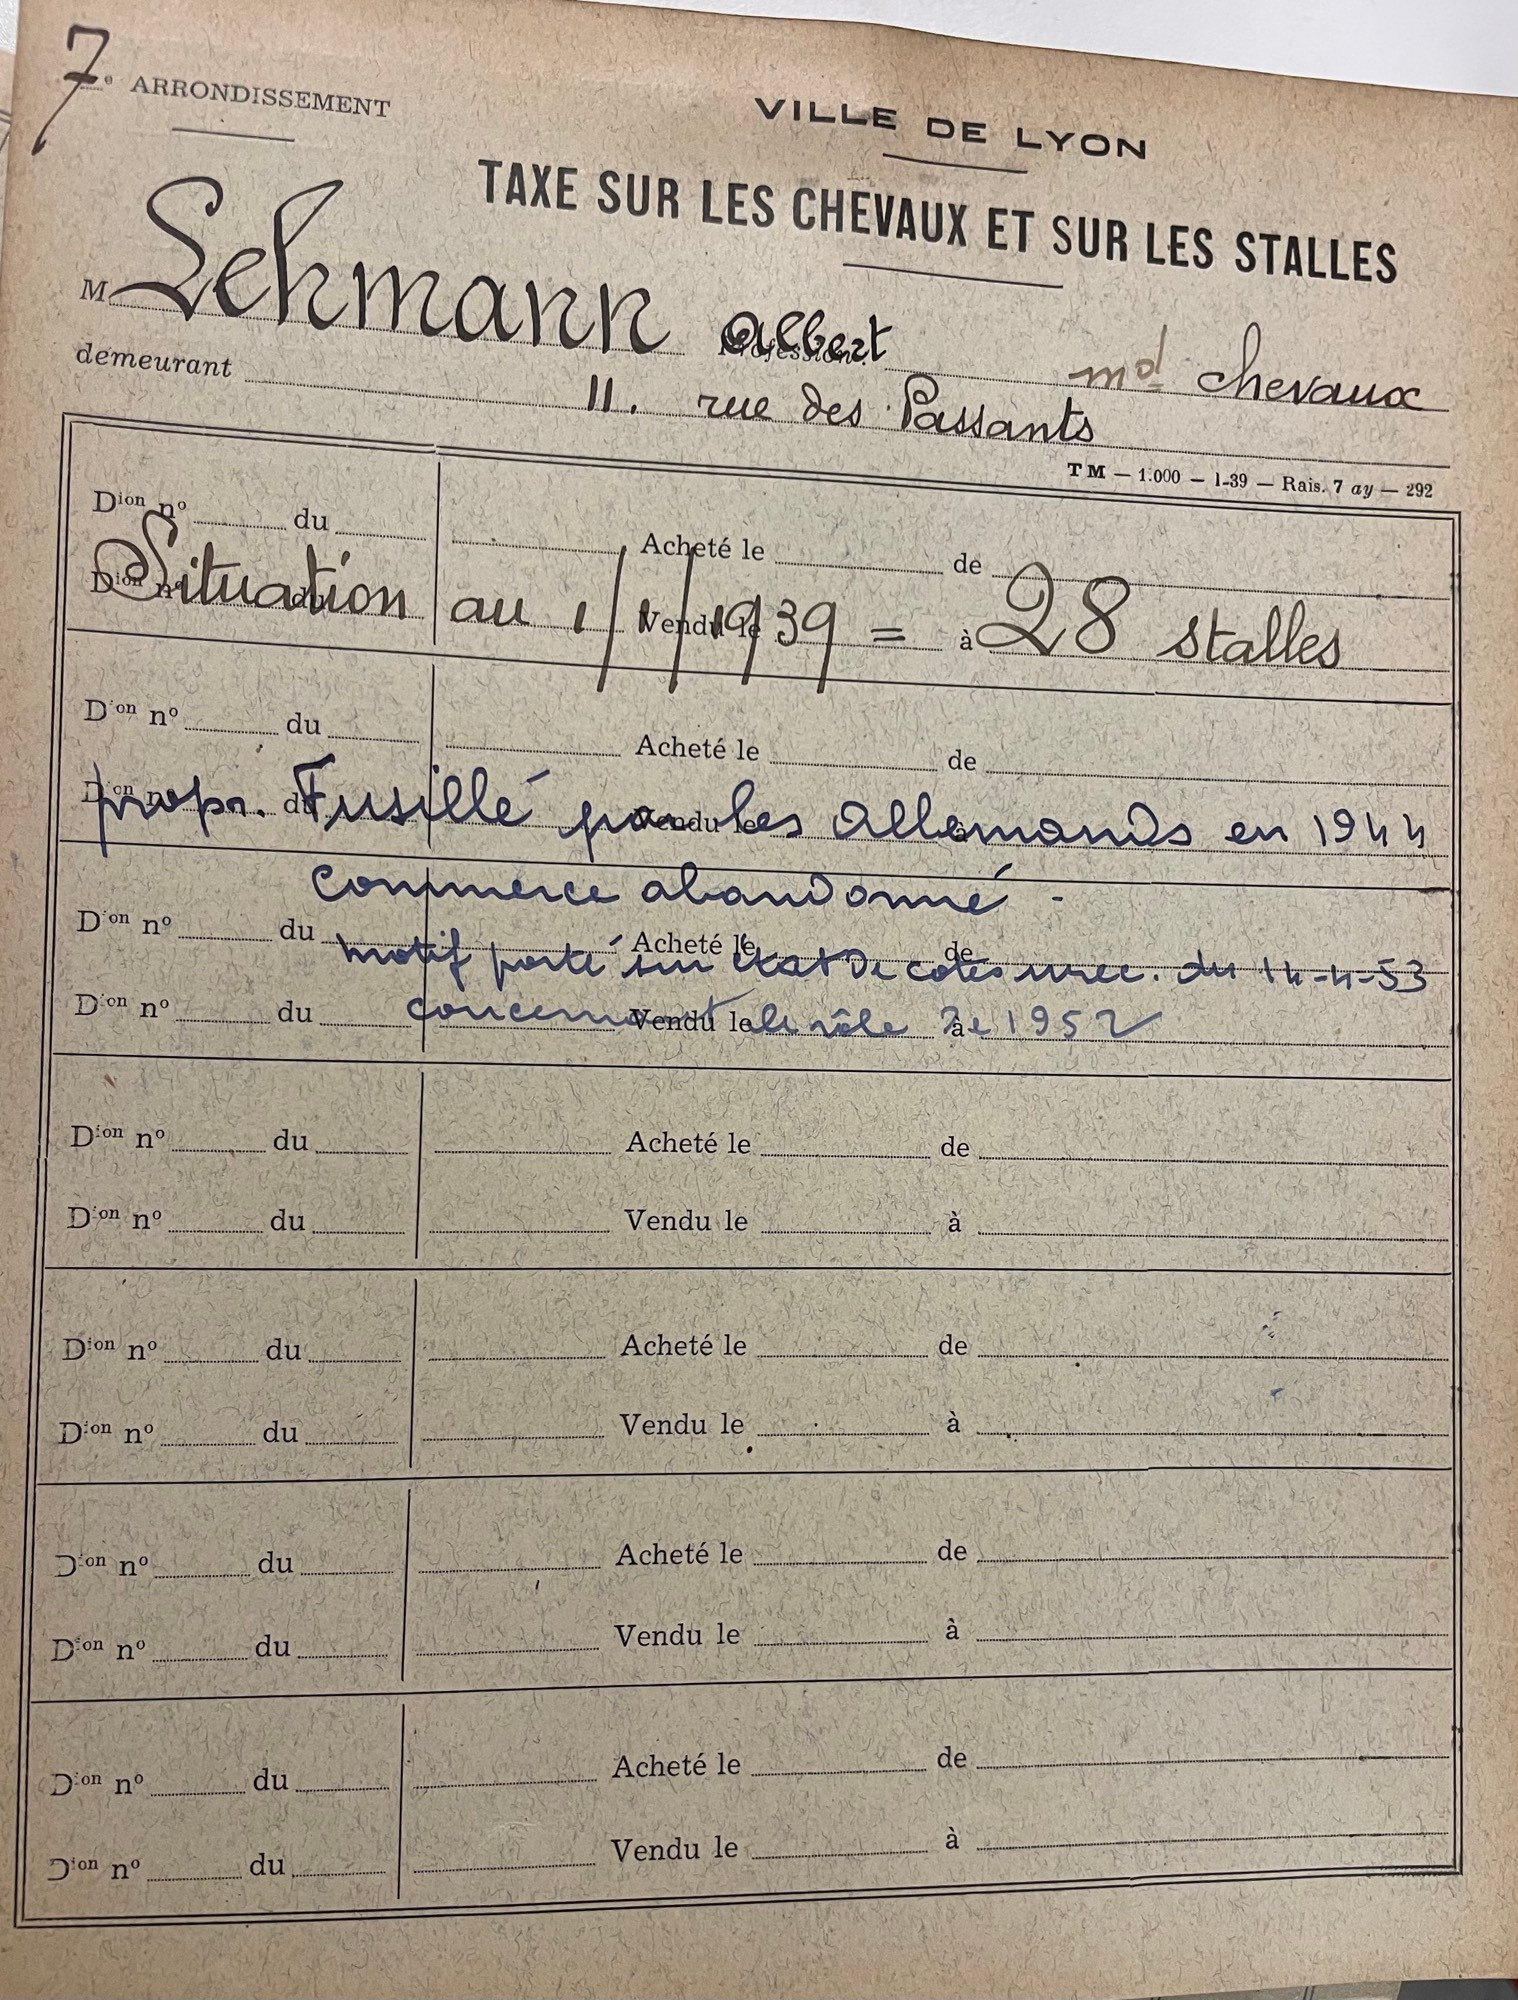 7e ARRONDISSEMENT
VILLE DE LYON
TAXE SUR LES CHEVAUX ET SUR LES STALLES
M Lehmann Albert Profession: md chevaux
demeurant 11. rue des Passants
TM — 1.000 — 1-39 — Rais. 7 ay — 292
Dion no du Acheté le de
Dion no du Vendu le à
Situation au 1/1/1939 = 28 stalles
Dion no du Acheté le de
Dion no du Vendu le à
propr. Fusillé par les Allemands en 1944
commerce abandonné -
Dion no du Acheté le de
motif porté sur état de cotes irrec. du 14-4-53
Dion no du Vendu le à
concernant le rôle de 1952
Dion no du Acheté le de
Dion no du Vendu le à
Dion no du Acheté le de
Dion no du Vendu le à
Dion no du Acheté le de
Dion no du Vendu le à
Dion no du Acheté le de
Dion no du Vendu le à